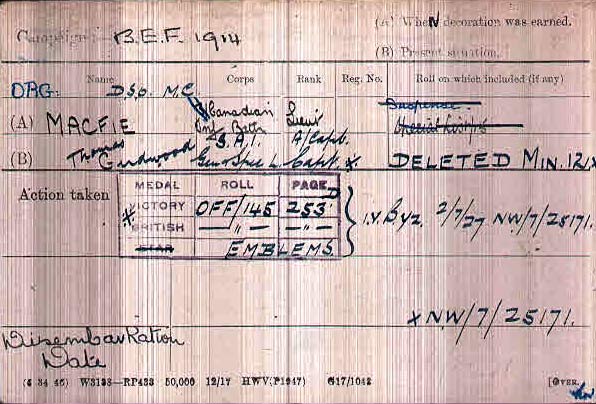 Campaign:— B.E.F. 1914
(A) When decoration was earned.
(B) Present situation.
Name Corps Rank Reg. No. Roll on which included (if any)
ORG: D.S.O. M.C.
Canadian Lieut Suspense
(A) MACFIE Inf. Bttn
S.A.I. A/Capt.
(B) Thomas Girdwood Gen Spec L. Capt. x DELETED MIN. 12/
Action taken
MEDAL ROLL PAGE
x VICTORY OFF/145 253 D
BRITISH —"— —"—
STAR EMBLEMS.
I.V. Byz. 2/7/27 NW/7/25171.
x NW/7/25171.
Disembarkation
Date
(6 34 46) W3198—RP433 50,000 12/17 HWV(P1947) G17/1042
[OVER.